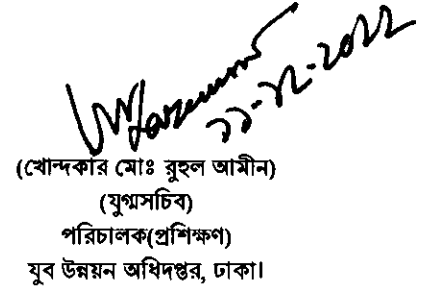 ২২-১২-২০২২
(খোন্দকার মোঃ রুহুল আমীন)
(যুগ্মসচিব)
পরিচালক(প্রশিক্ষণ)
যুব উন্নয়ন অধিদপ্তর, ঢাকা।